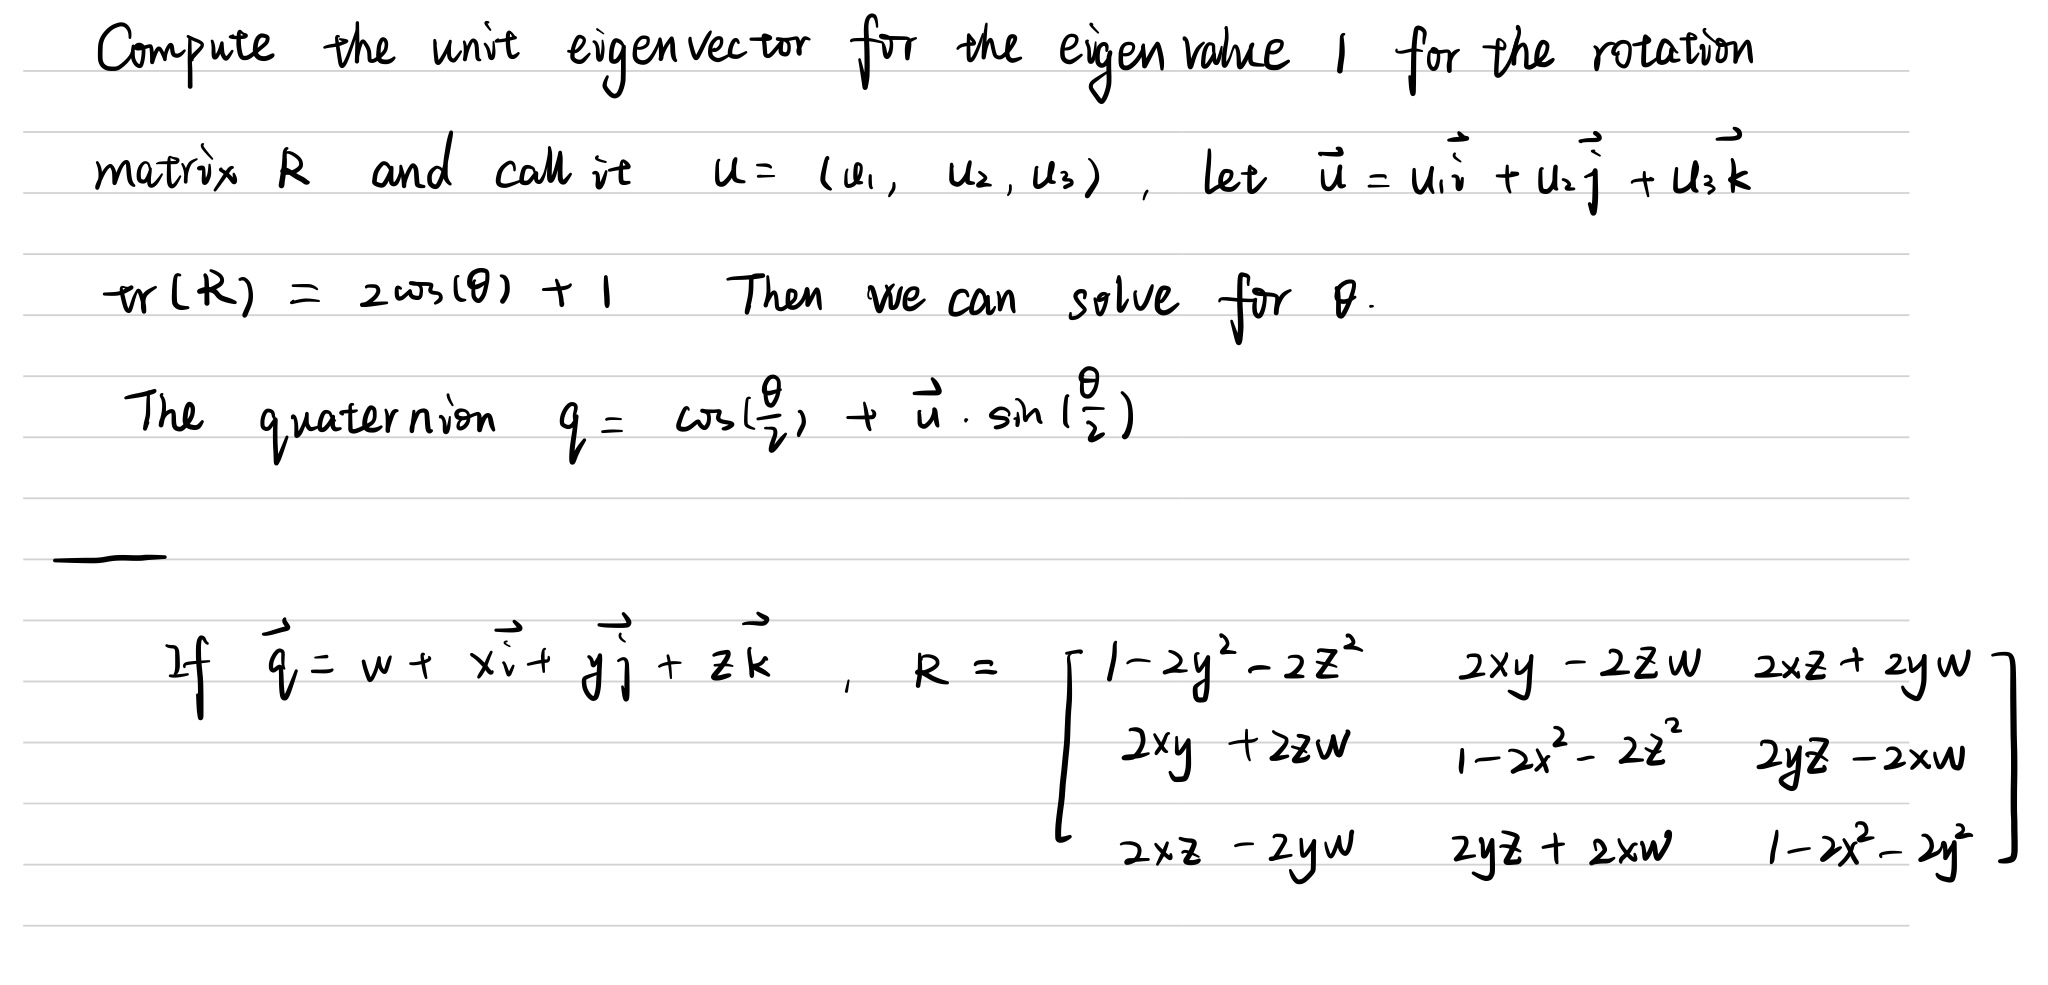 Compute the unit eigenvector for the eigenvalue 1 for the rotation
matrix R and call it u = (u₁, u₂, u₃), let u⃗ = u₁i⃗ + u₂j⃗ + u₃k⃗
tr(R) = 2cos(θ) + 1 Then we can solve for θ.
The quaternion q = cos(θ/2) + u⃗ · sin(θ/2)
If q⃗ = w + xi⃗ + yj⃗ + zk⃗, R = [1-2y²-2z² 2xy-2zw 2xz+2yw
2xy+2zw 1-2x²-2z² 2yz-2xw
2xz-2yw 2yz+2xw 1-2x²-2y²]